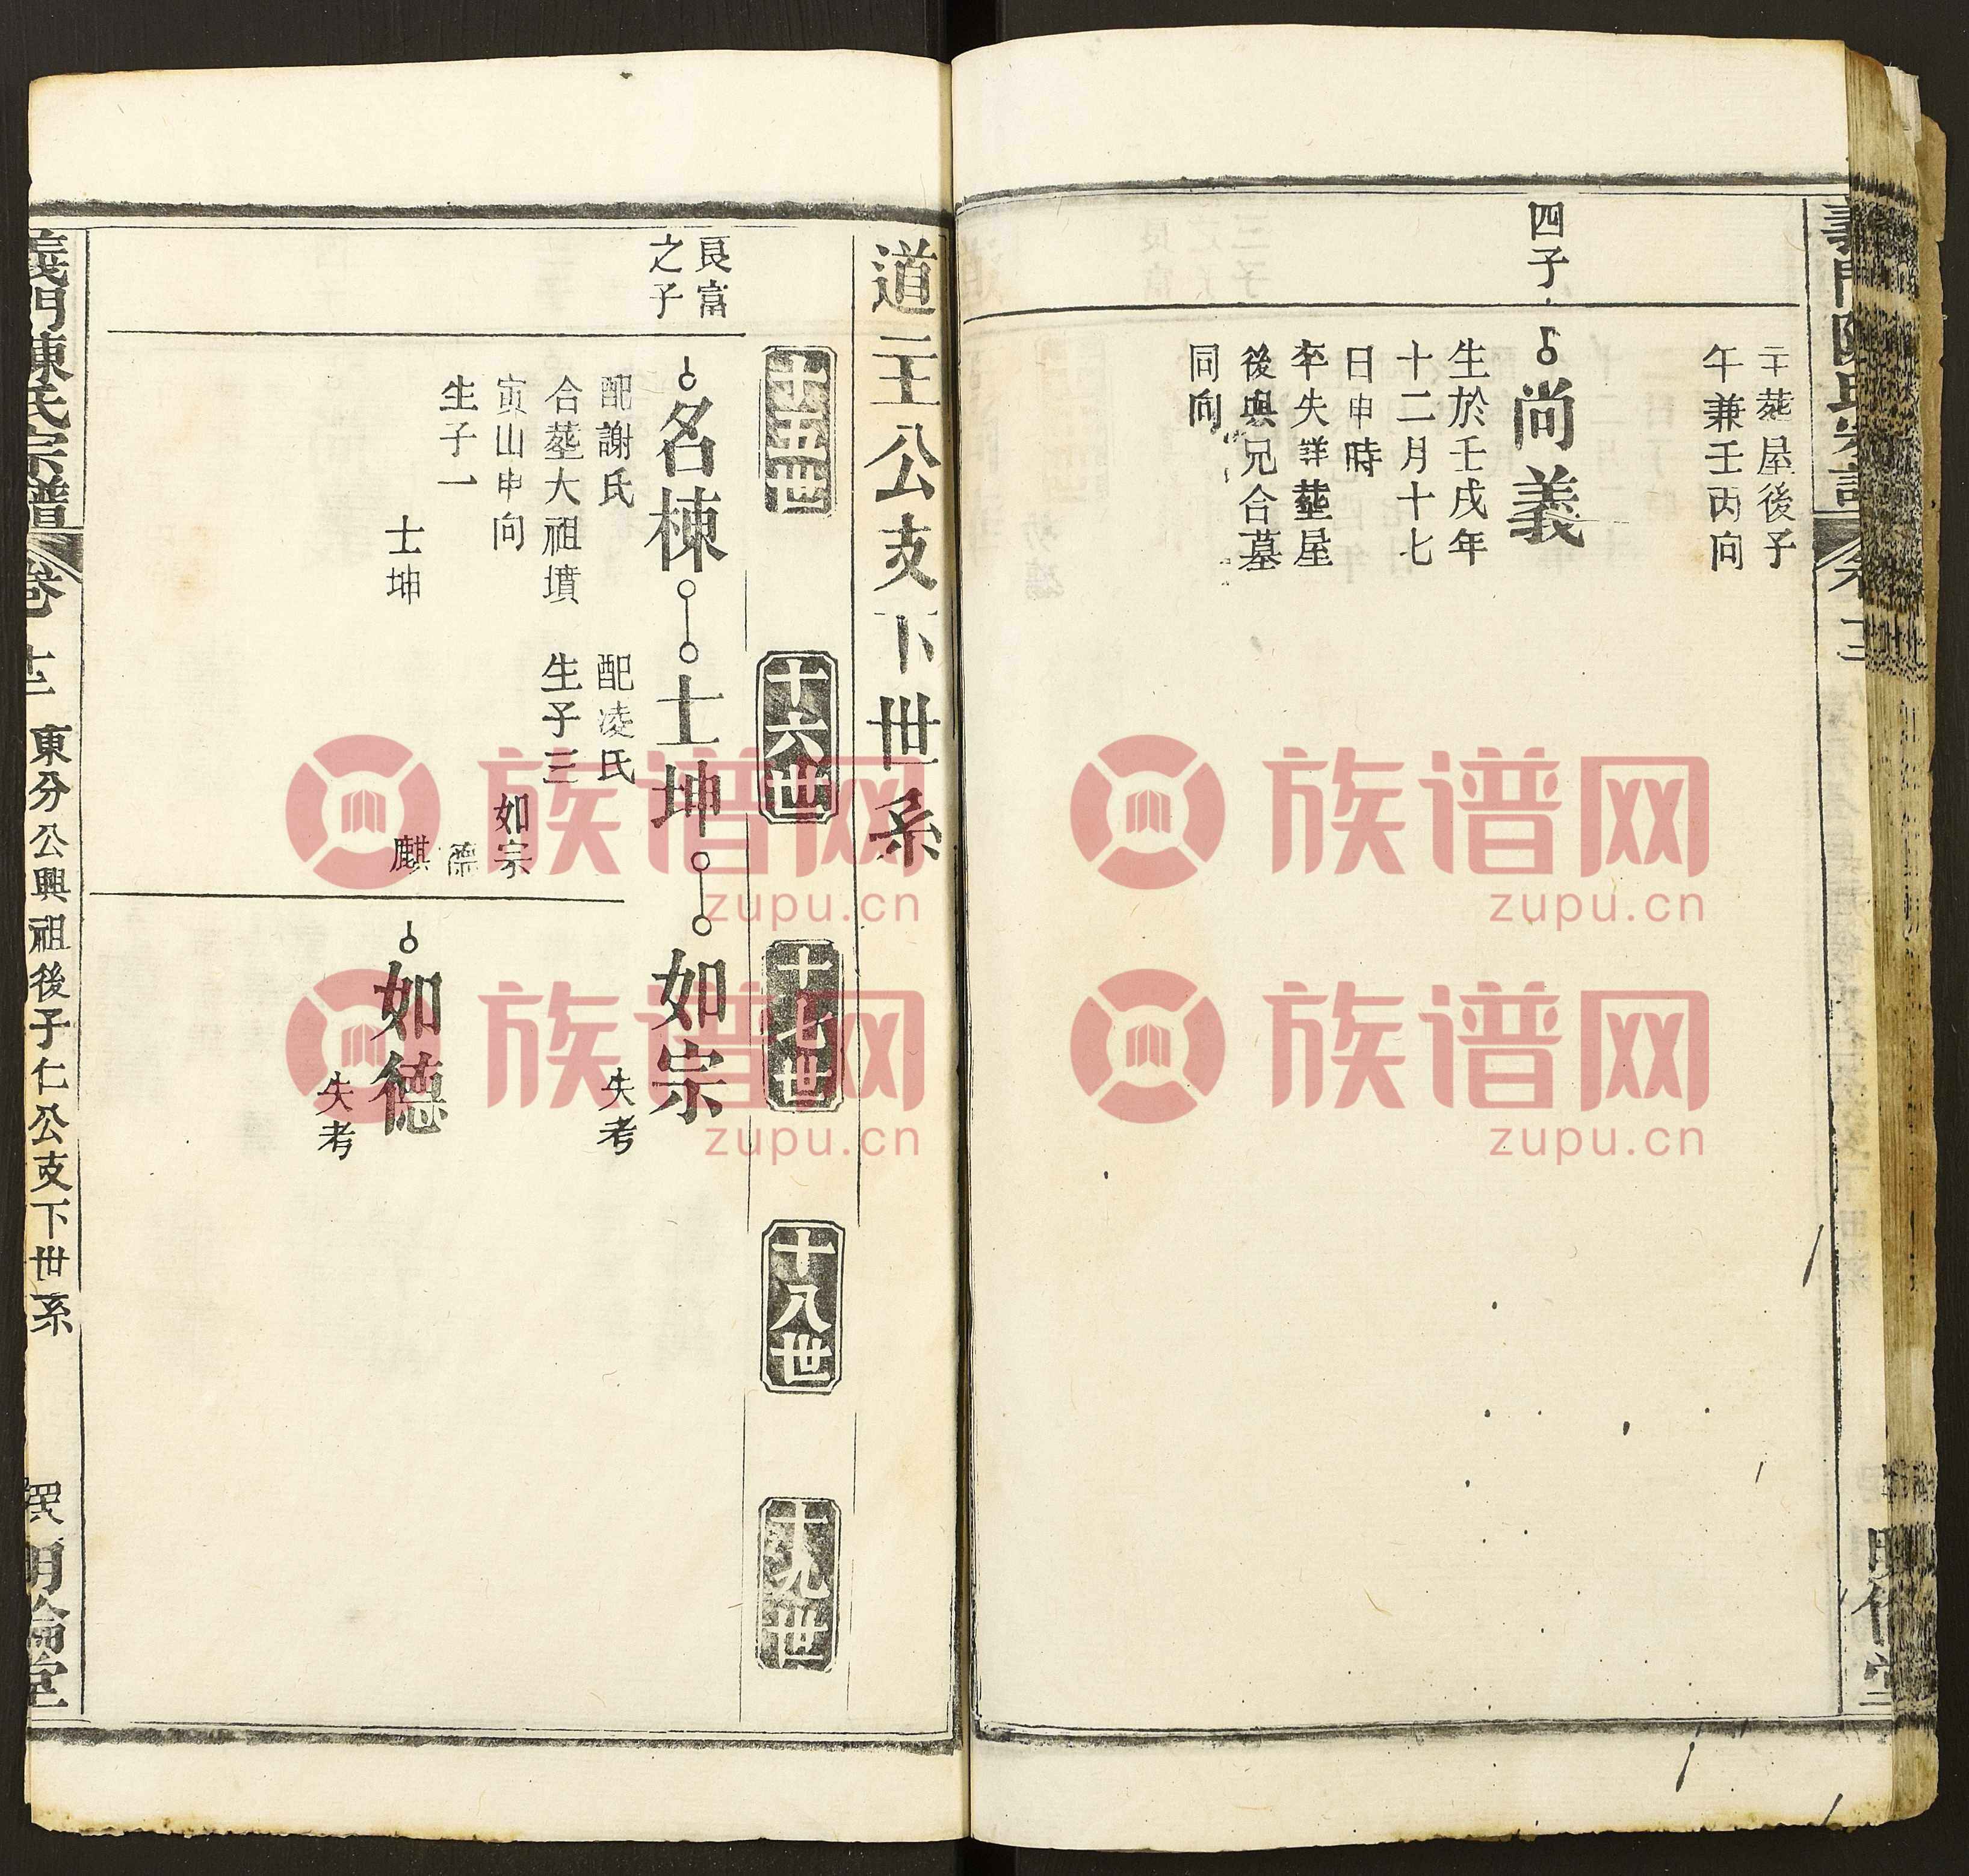 午葬屋後子
午兼壬丙向
四子
尚義
生於壬戌年
十二月十七
日申時
卒失詳葬屋
後與兄合墓
同向
道玉公支下世系
十五世
十六世
十七世
十八世
十九世
良富
之子
名棟
士坤
如宗
配謝氏
合葬大祖墳
寅山申向
生子一
士坤
配凌氏
生子三
如宗
德
麒
失考
如德
失考
義門陳氏宗譜
卷
東分公興祖後子仁公支下世系
明倫堂
族谱网
zupu.cn
族谱网
zupu.cn
族谱网
zupu.cn
族谱网
zupu.cn